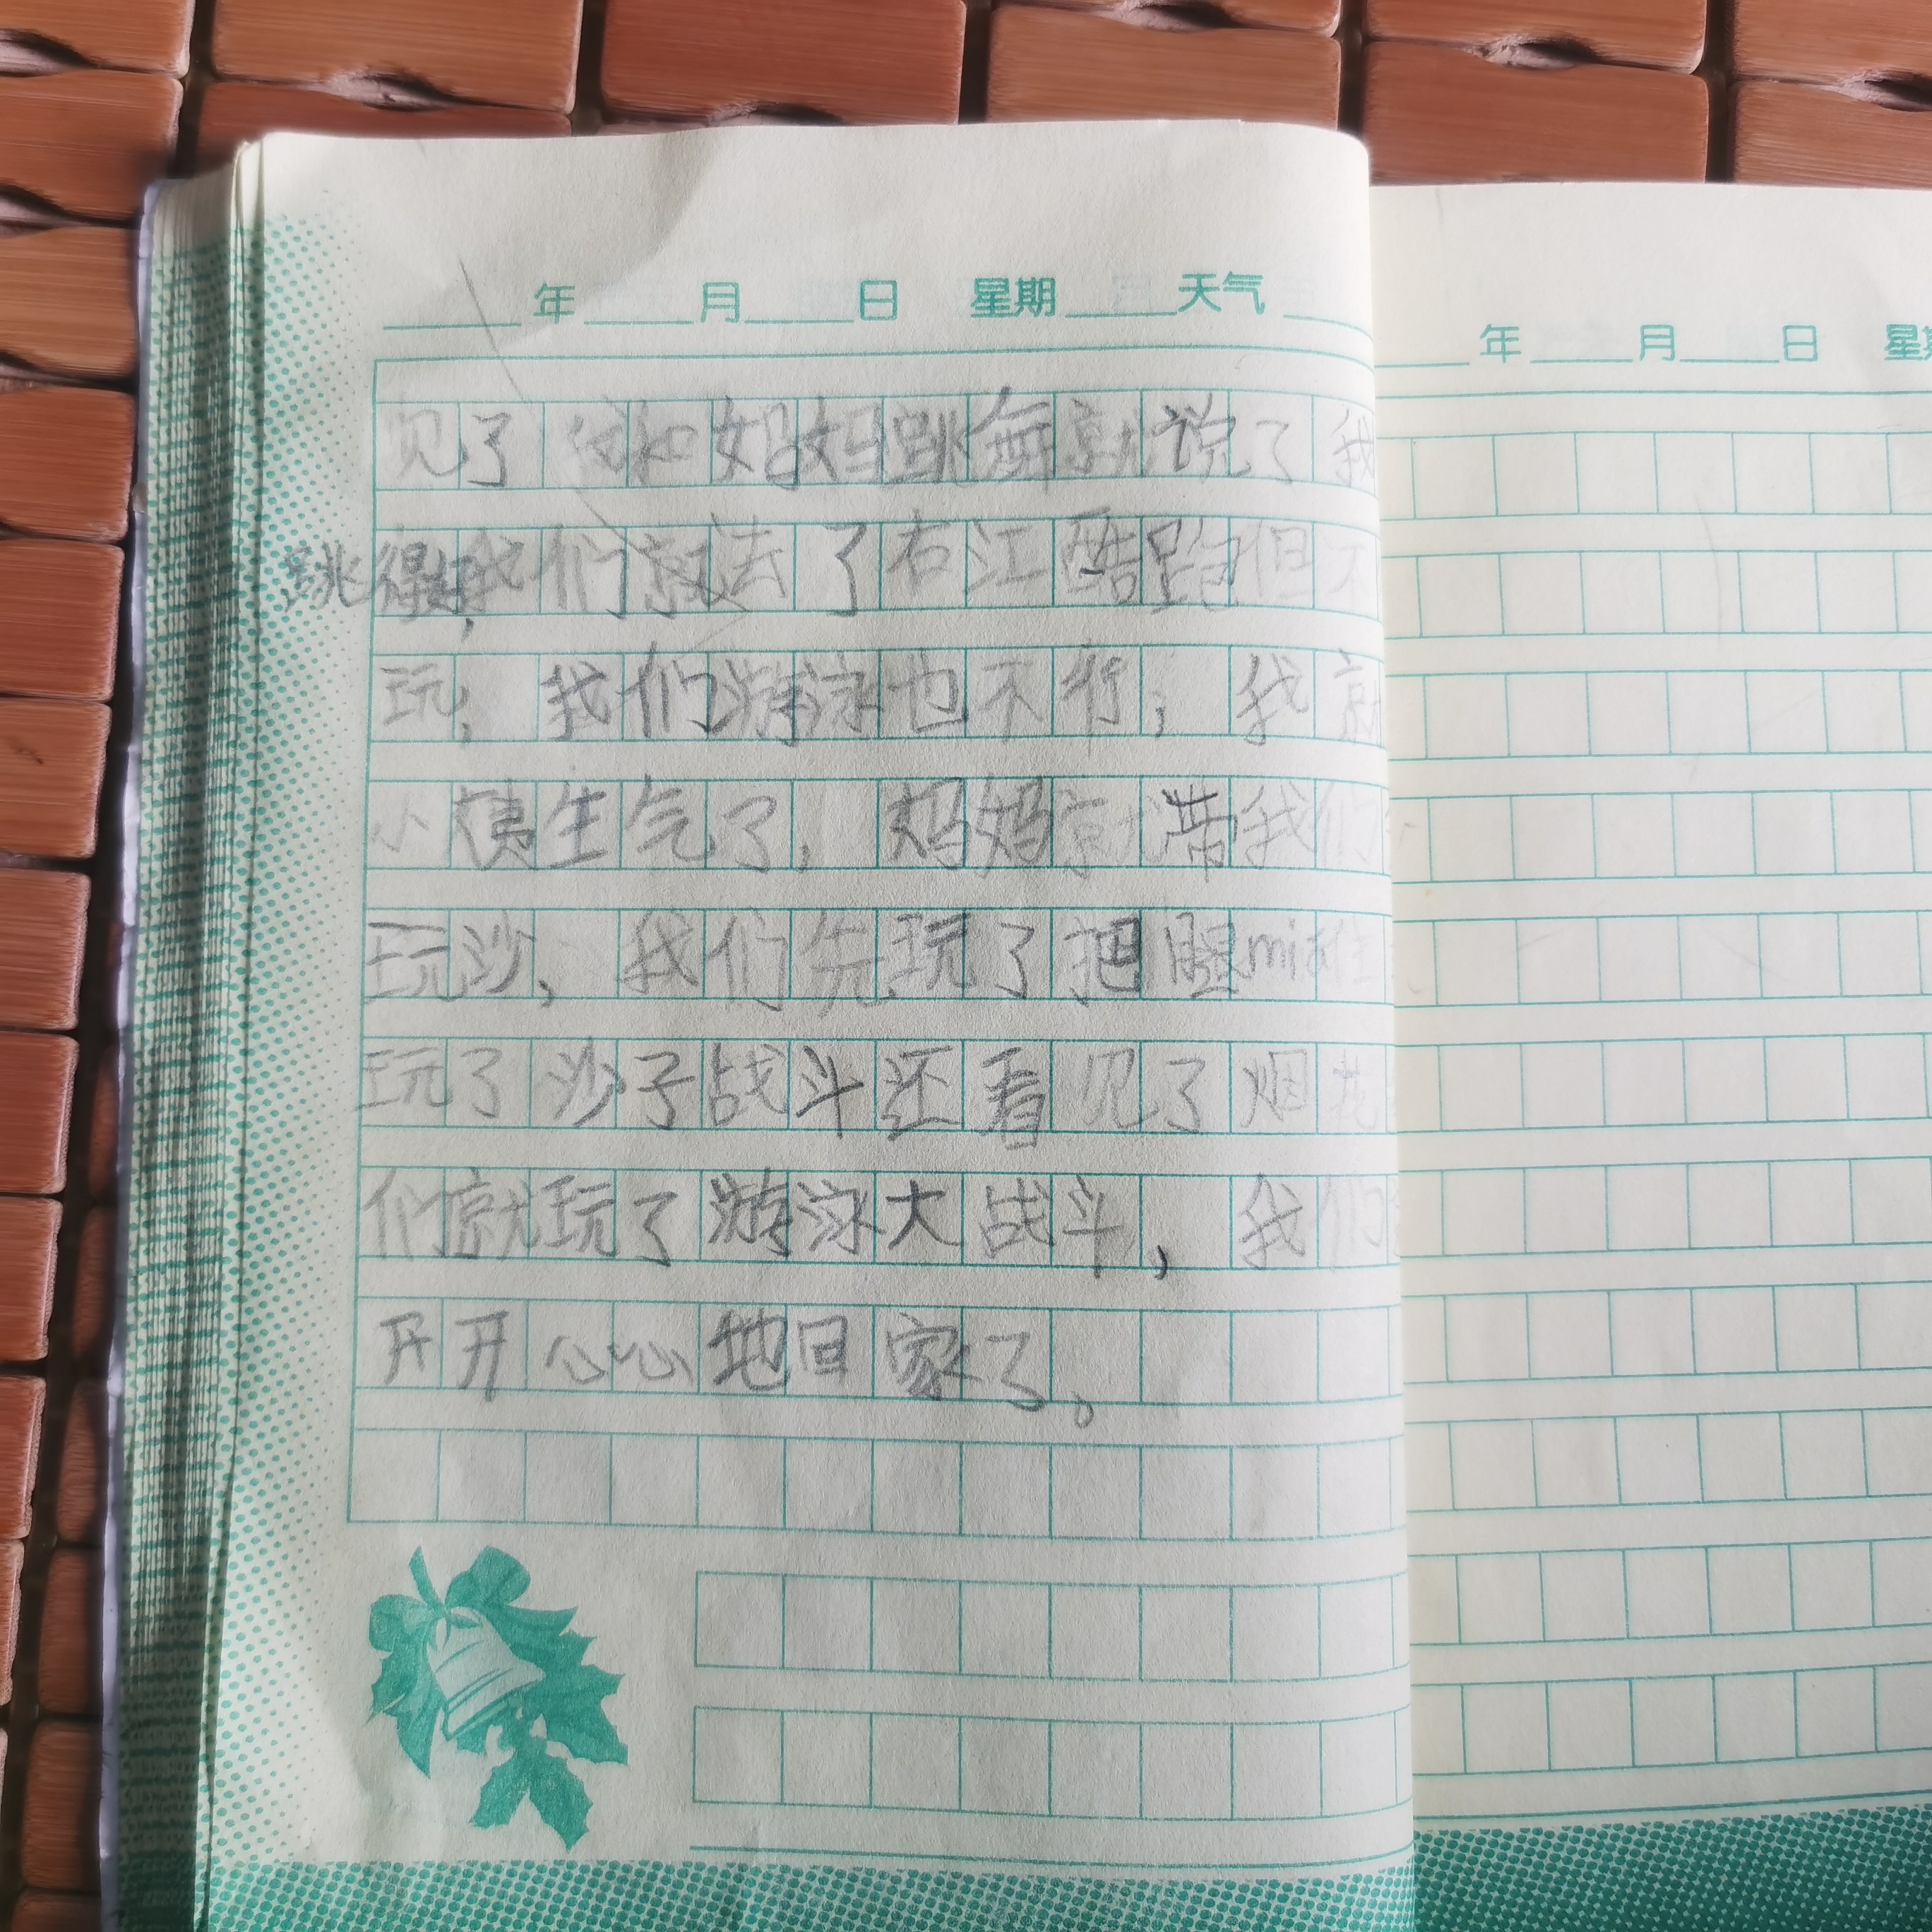 年 月 日 星期 天气
年 月 日
见了 我和妈妈跳舞就说了我
跳得好,我们就去了右江酷跑但不
玩, 我们游泳也不行, 我就
小姨生气了, 妈妈就带我们
玩沙, 我们先玩了把腿mi
玩了沙子战斗还看见了烟花
们就玩了游泳大战斗, 我们
开开心心地回家了。